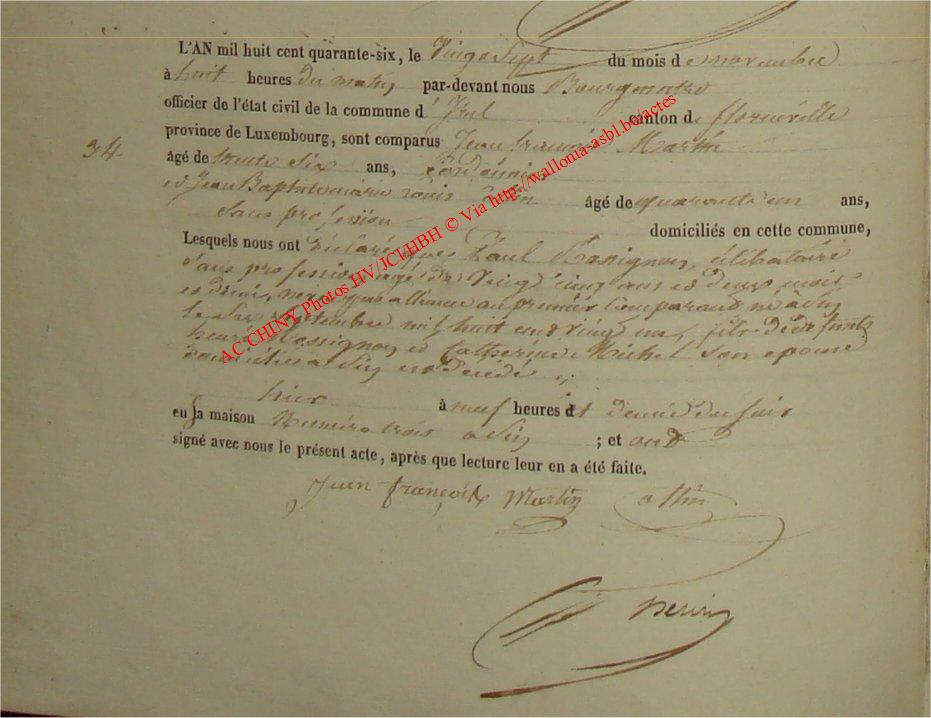 L'AN mil huit cent quarante-six, le Vingt Sept du mois de novembre
à huit heures du matin par-devant nous Bourgmestre
officier de l'état civil de la commune d' canton de florenville
34
province de Luxembourg, sont comparus Jean françois Martin
âgé de trente Six ans,
et Jean Baptiste louis âgé de quarante un ans,
Sans profession domiciliés en cette commune,
Lesquels nous ont Déclaré que Paul Massignon, célibataire
Sans profession agé de Vingt cinq ans et deux mois
et demi, alliance au premier Comparant né à
le Six Septembre mil huit cent vingt un, fils de défunts
henri Massignon et Catherine Michel Son epouse
domiciliés à est décédé
hier à neuf heures et demie du soir
en sa maison Numéro trois à ; et ont
signé avec nous le présent acte, après que lecture leur en a été faite.
Jean françois Martin
AC CHINY Photos HV/JCl/HBH © Via http://wallonia-asbl.be/actes